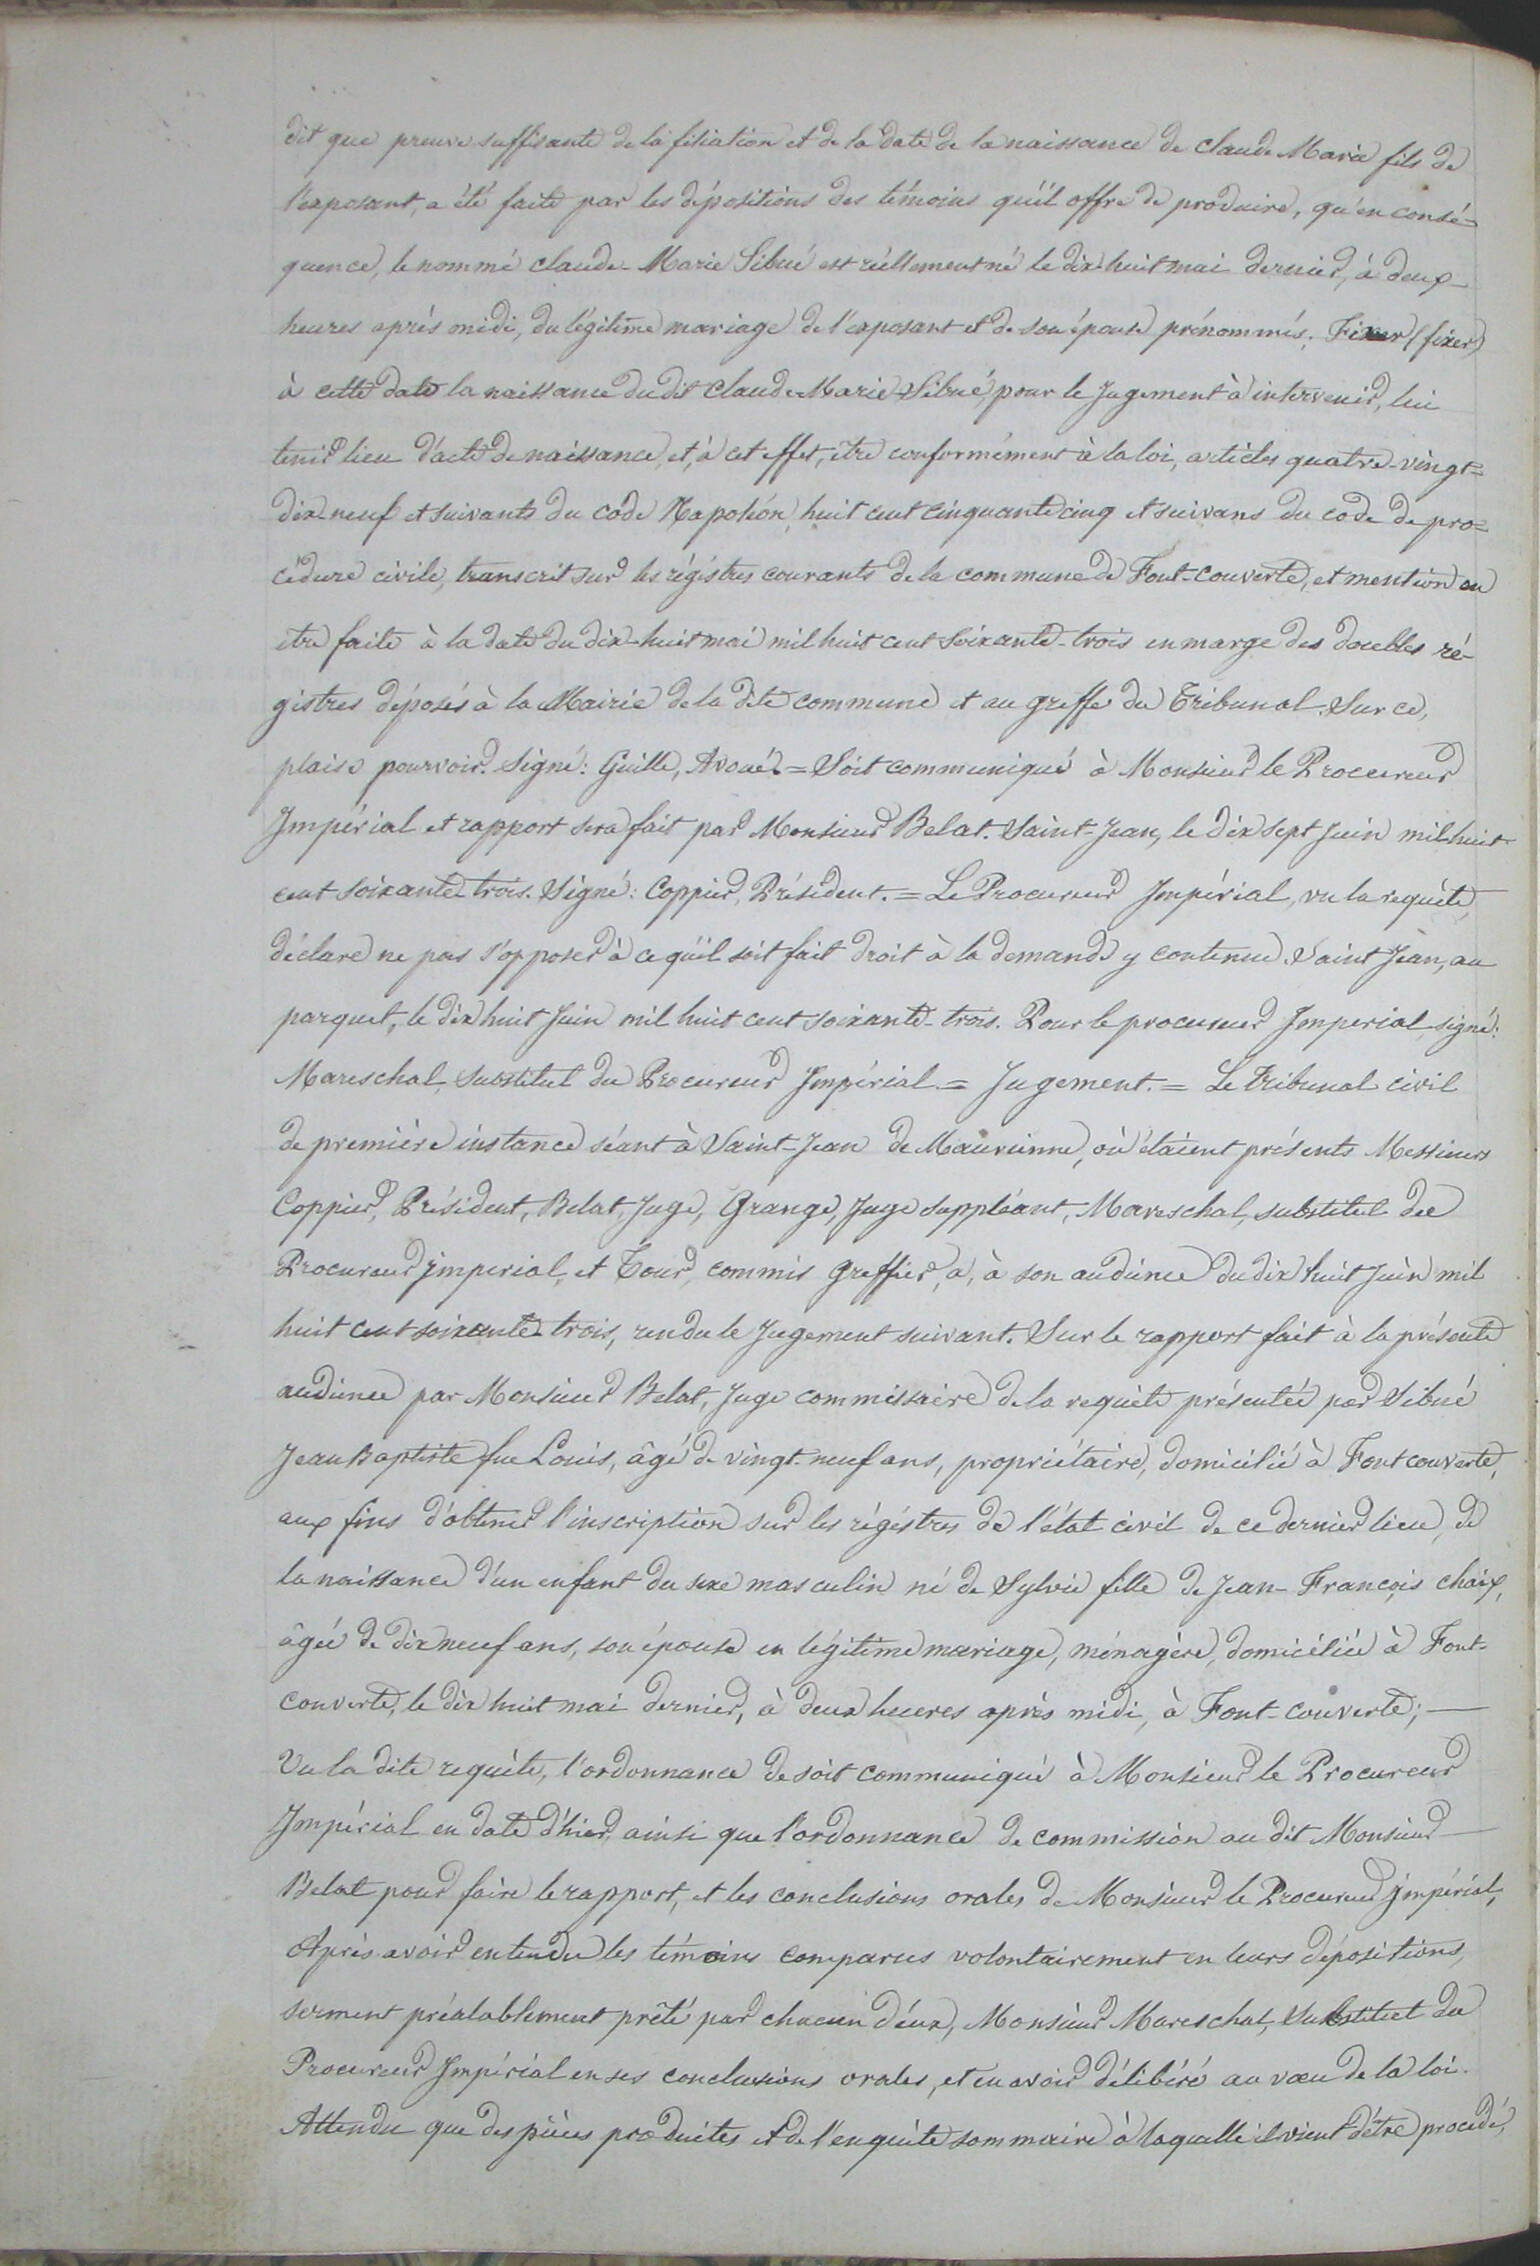 dit que preuve suffisante de la filiation et de la date de la naissance de claude Marie fils de
l'exposant, a été faite par les dépositions des témoins qu'il offre de produire, qu'en consé-
quence, le nommé claude-Marie Sibué est réellement né le dix-huit mai dernier, à deux
heures après midi, du légitime mariage de l'exposant et de son épouse prénommés; Fixer (fixer)
à cette date la naissance du dit Claude-Marie Sibué, pour le Jugement à intervenir, lui
tenir lieu d'acte de naissance, et, à cet effet, être conformément à la loi, articles quatre-vingt-
dix-neuf et suivants du code Napoléon, huit cent cinquante cinq et suivans du code de pro=
cédure civile, transcrit sur les régistres courants de la commune de Font-couverte, et mention en
être faite à la date du dix-huit mai mil huit cent soixante-trois en marge des doubles ré-
gistres déposés à la Mairie de la dite commune et au greffe du Tribunal. Sur ce,
plaise pourvoir. Signé: Guille, Avoué. = Soit communiqué à Monsieur le Procureur
Impérial et rapport sera fait par Monsieur Belat. Saint-Jean, le dix sept Juin mil huit
cent soixante trois. Signé: Coppier, Président. = Le Procureur Impérial, vu la requête,
déclare ne pas s'opposer à ce qu'il soit fait droit à la demande y contenue. Saint Jean, au
parquet, le dix huit Juin mil huit cent soixante-trois. Pour le procureur Imperial, signé:
Mareschal, substitut du Procureur Impérial. = Jugement. = Le tribunal civil
de première instance séant à Saint-Jean de Maurienne, où étaient présents Messieurs
Coppier, Président, Belat, Juge, Grange, Juge suppléant, Mareschal, substitut du
Procureur Imperial, et Tour, commis greffier, a, à son audience du dix huit Juin mil
huit cent soixante trois, rendu le Jugement suivant. Sur le rapport fait à la présente
audience par Monsieur Belat, Juge commissaire de la requête présentée par Sibué
Jean Baptiste feu Louis, âgé de vingt-neuf ans, propriétaire, domicilié à Fontcouverte,
aux fins d'obtenir l'inscription sur les régistres de l'état civil de ce dernier lieu, de
la naissance d'un enfant du sexe masculin né de Sylvie fille de Jean-François chaix,
âgée de dix neuf ans, son épouse en légitime mariage, ménagère, domiciliée à Font-
couverte, le dix huit mai dernier, à deux heures après midi, à Font-couverte;
Vu la dite requête, l'ordonnance de soit communiqué à Monsieur le Procureur
Impérial en date d'hier, ainsi que l'ordonnance de commission au dit Monsieur
Belat pour faire le rapport, et les conclusions orales de Monsieur le Procureur Impérial,
Après avoir entendu les témoins comparus volontairement en leurs dépositions,
serment préalablement prêté par chacun d'eux, Monsieur Mareschal, Substitut du
Procureur Impérial en ses conclusions orales, et en avoir délibéré au vœu de la loi.
Attendu que des pièces produites et de l'enquête sommaire à laquelle il vient d'être procédé,